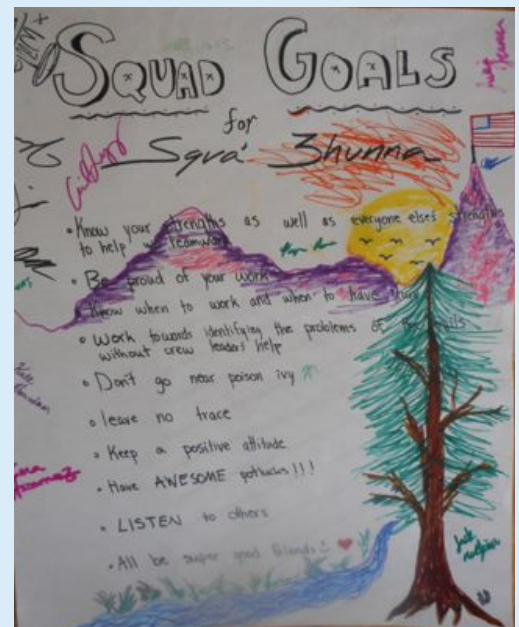 SQUAD GOALS
for
Sqra' 3hunna
• Know your strengths as well as everyone else's strengths
to help w/ teamwork
• Be proud of your work
• Know when to work and when to have fun
• Work towards identifying the problems of the trails
without crew leaders help
• Don't go near poison ivy
• leave no trace
• Keep a positive attitude
• Have AWESOME potlucks!!!
• LISTEN to others
• All be super good friends